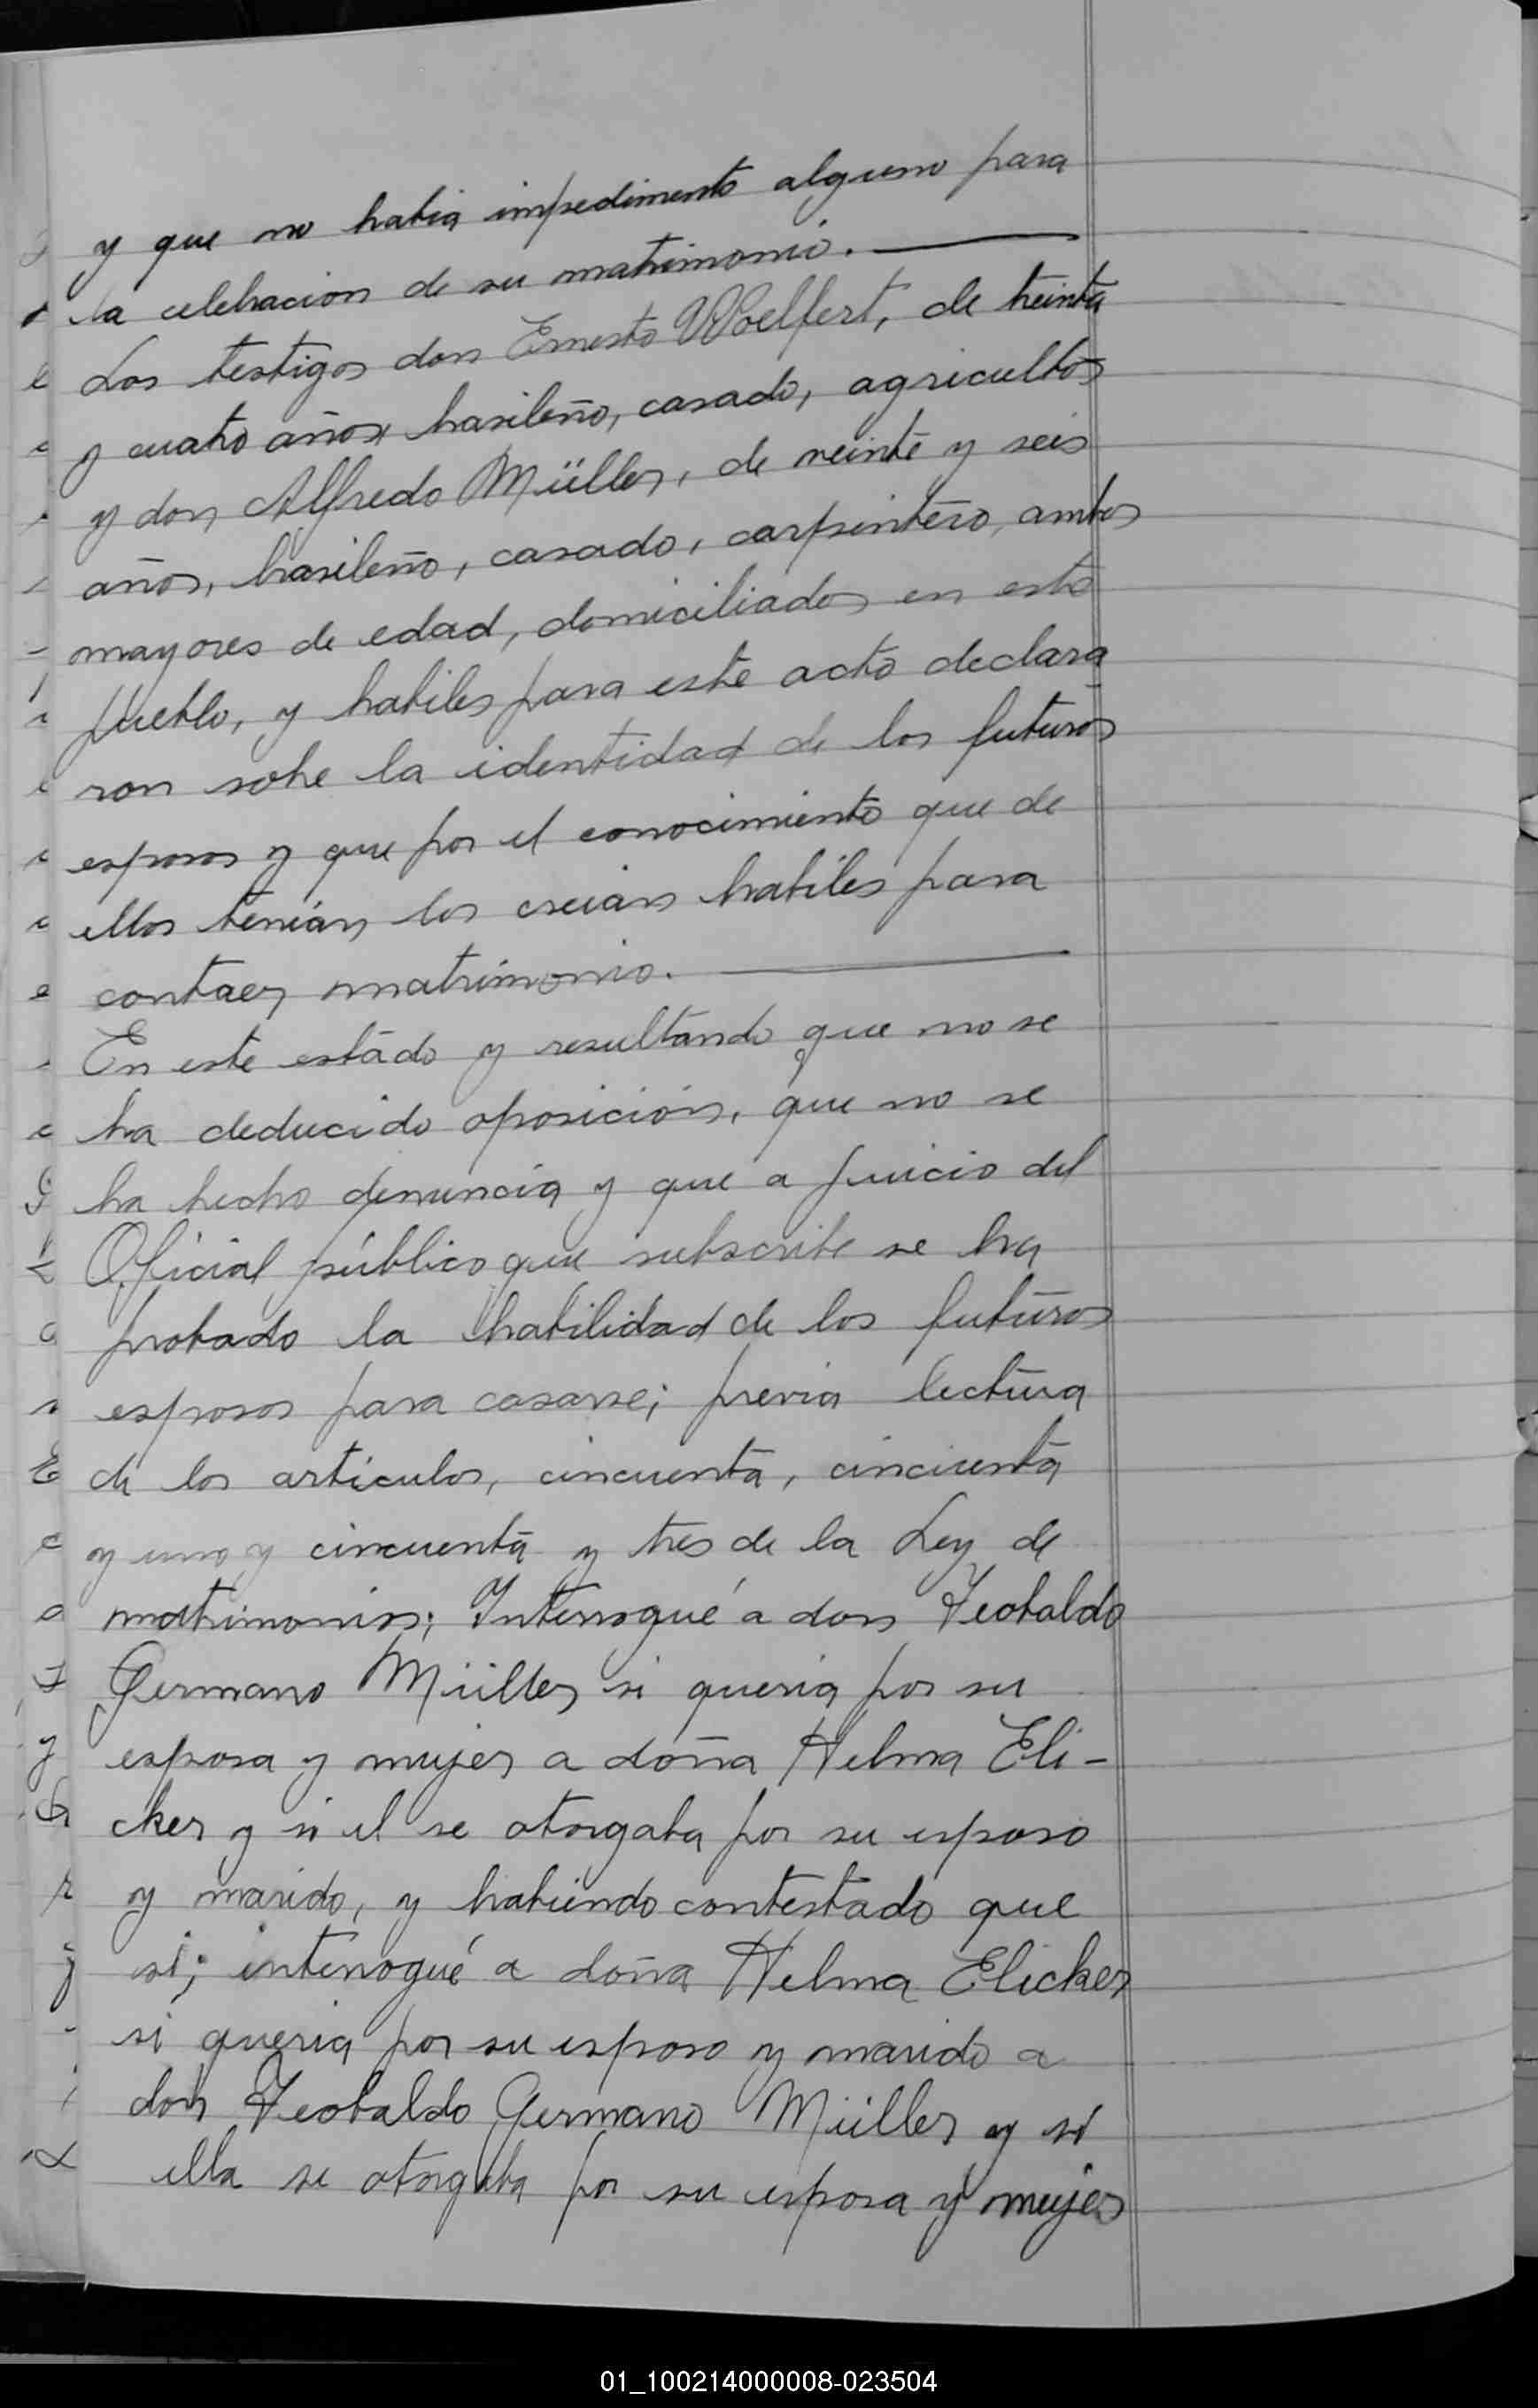 y que no habia impedimento alguno para
la celebracion de su matrimonio.
Los testigos don Ernesto Woelfert, de treinta
y cuatro años, brasileño, casado, agricultor
y don Alfredo Müller, de veinte y seis
años, brasileño, casado, carpintero, ambos
mayores de edad, domiciliados en este
pueblo, y habiles para este acto declara-
ron sobre la identidad de los futuros
esposos y que por el conocimiento que de
ellos tenian los creian habiles para
contaer matrimonio.
En este estado y resultando que no se
ha deducido oposición, que no se
ha hecho denuncia y que a juicio del
Oficial público que subscribe se ha
probado la habilidad de los futuros
esposos para casarse; previa lectura
de los articulos, cincuenta, cincuenta
y uno y cincuenta y tres de la Ley de
matrimonios; Interrogué a don Teobaldo
Germano Müller si queria por su
esposa y mujer a doña Helma Eli-
cker y si el se otorgaba por su esposo
y marido, y habiendo contestado que
si; interrogué a doña Helma Elicker
si queria por su esposo y marido a
don Teobaldo Germano Müller y si
ella se otorgaba por su esposa y mujer
01_100214000008-023504